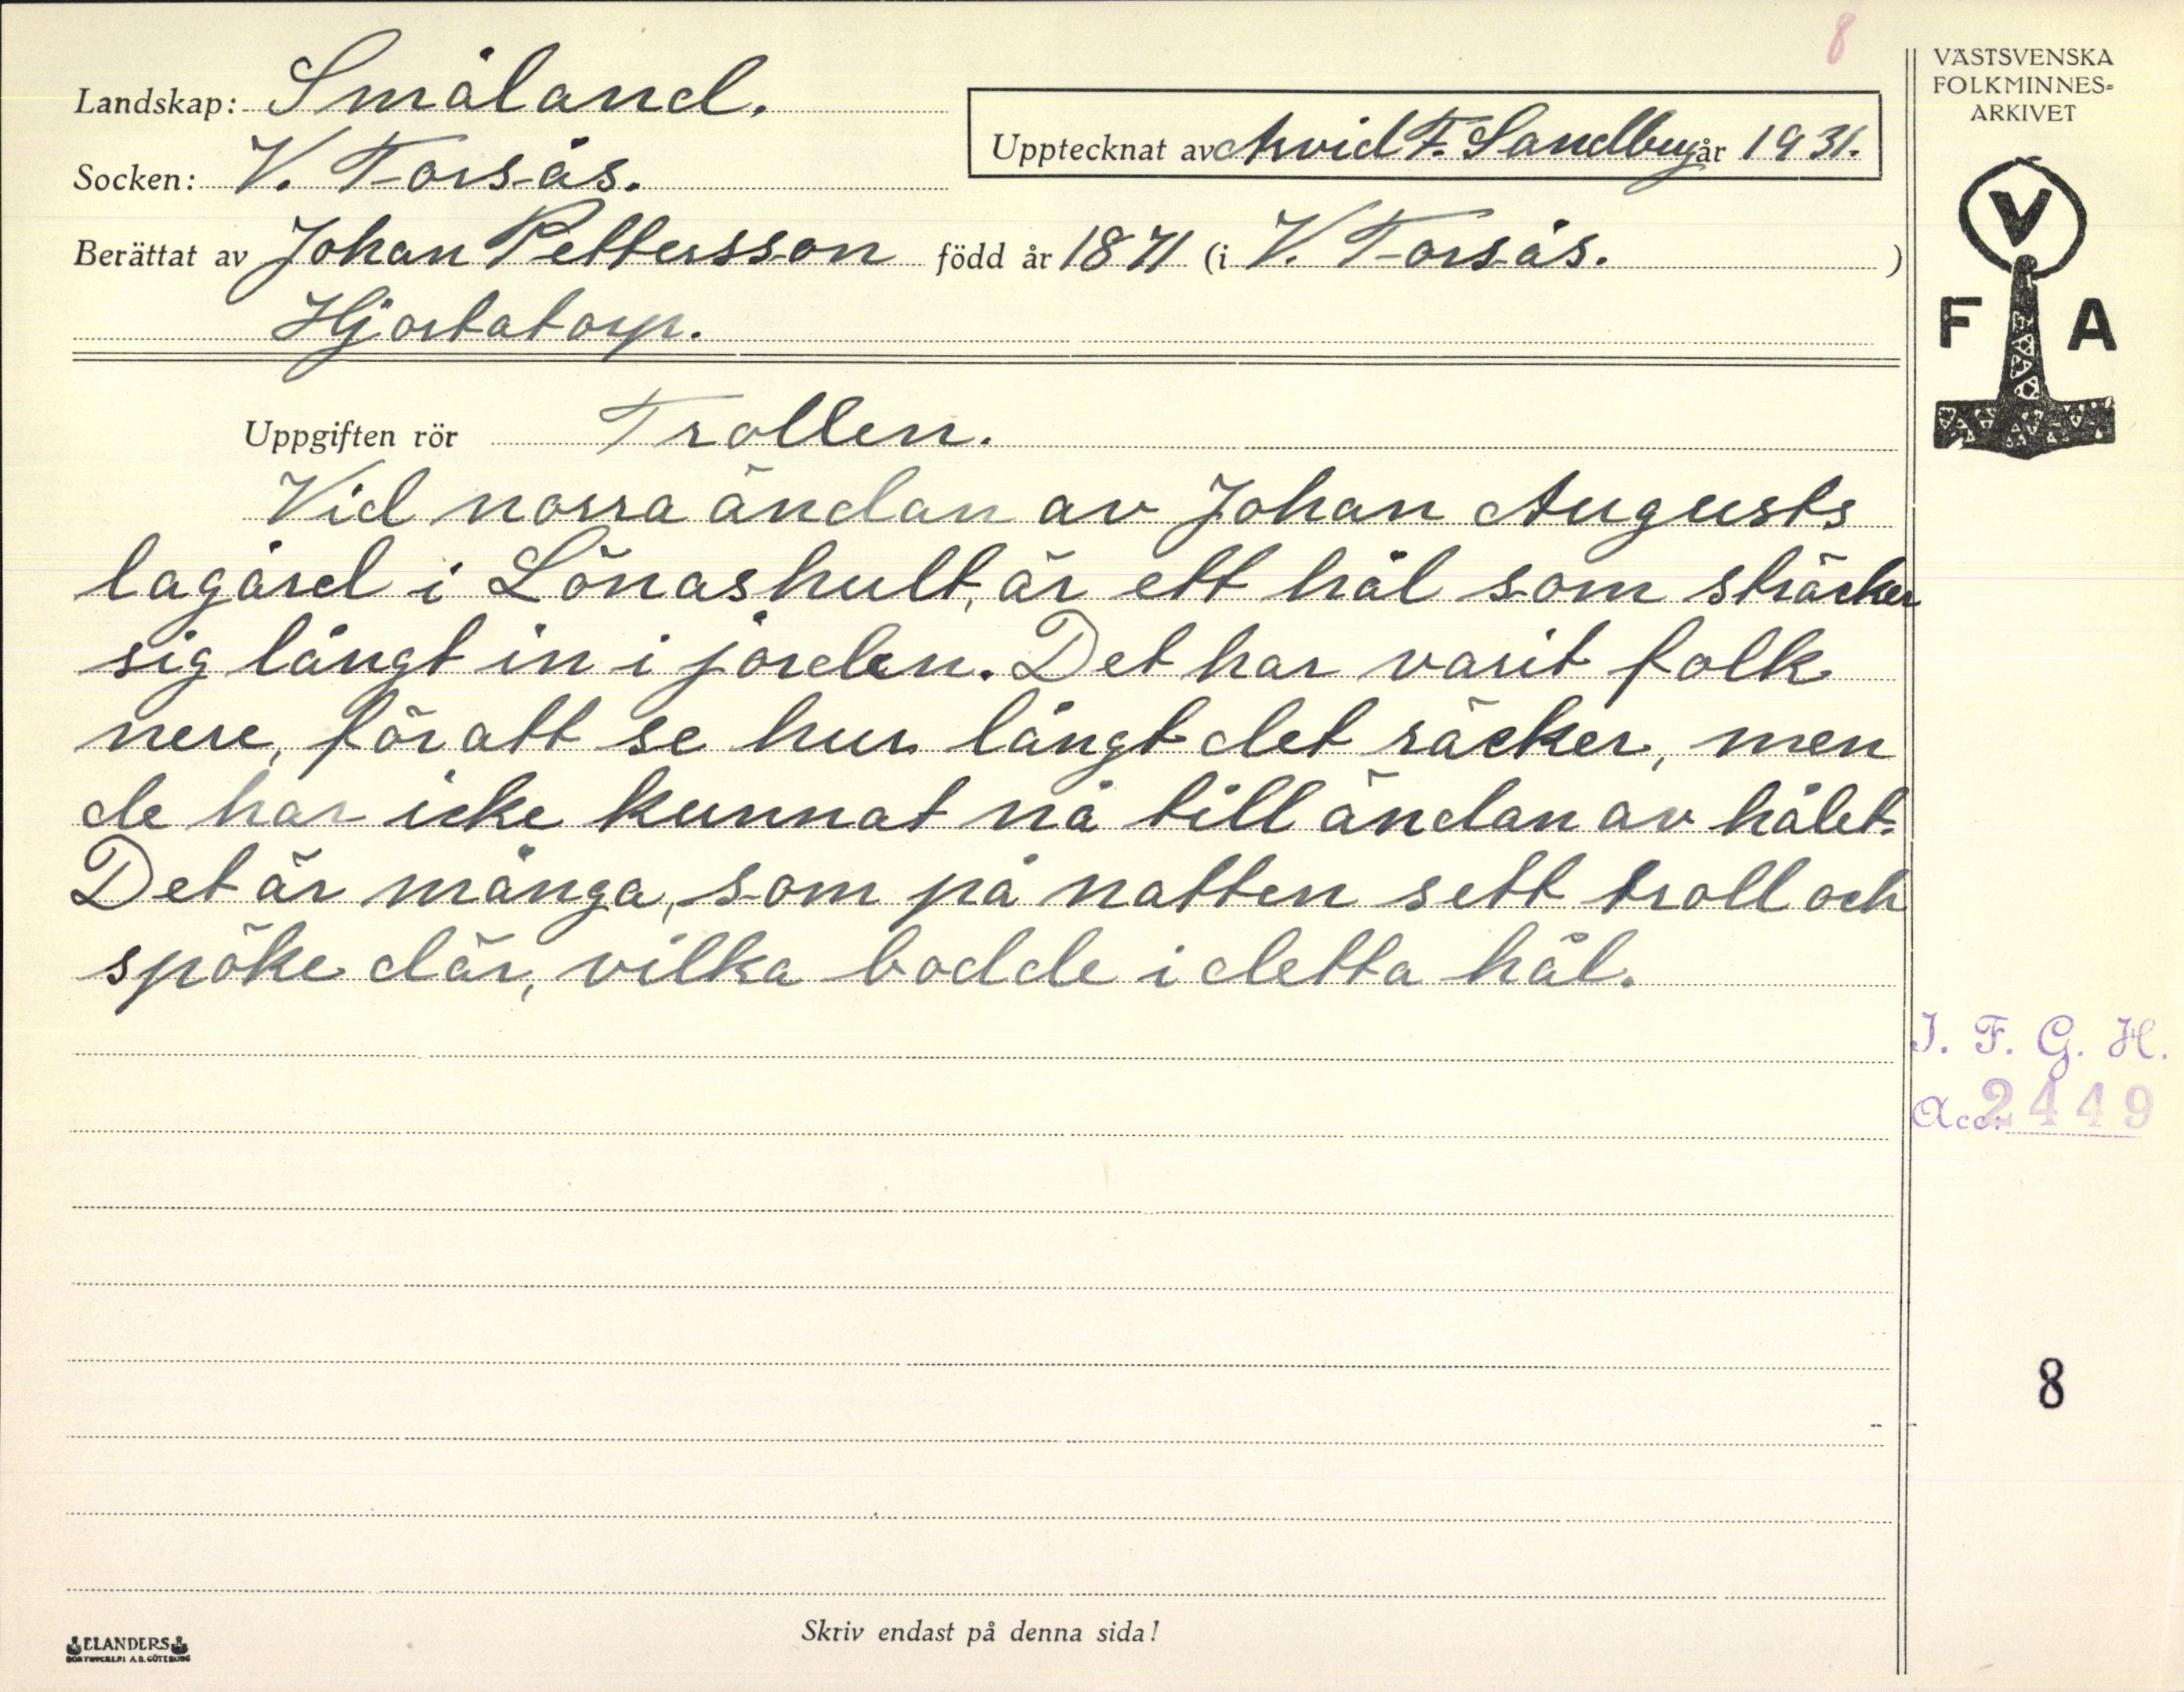 8
Landskap: Småland.
VÄSTSVENSKA
FOLKMINNES-
ARKIVET
Upptecknat av Arvid F. Sandby år 1931.
Socken: V. Torsås.
Berättat av Johan Pettersson född år 1871 (i V. Torsås. )
Hjortatorp.
V
F A
Uppgiften rör Trollen.
Vid norra ändan av Johan Augusts
lagård i Lönashult, är ett hål som sträcker
sig långt in i jorden. Det har varit folk
nere, för att se hur långt det räcker, men
de har icke kunnat nå till ändan av hålet.
Det är många, som på natten sett troll och
spöke där, vilka bodde i detta hål.
I. F. G. H.
Acc. 2449
8
Skriv endast på denna sida!
ELANDERS
BOKTRYCKERI A.B. GÖTEBORG